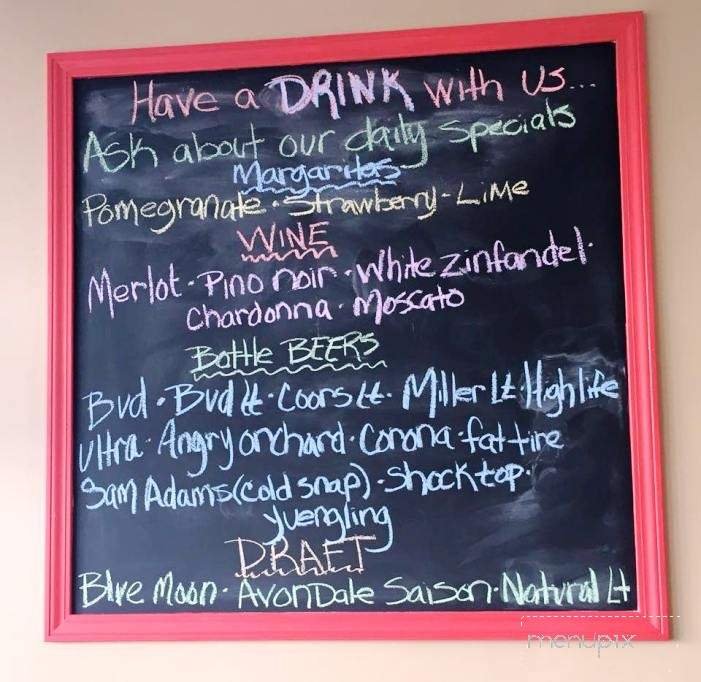 Have a DRINK with us...
Ask about our daily specials
Margaritas
Pomegranate · Strawberry - Lime
WINE
Merlot · Pino noir · White zinfandel ·
Chardonna · Moscato
Bottle BEERS
Bud · Bud Lt · Coors Lt · Miller Lt · High life
Ultra · Angry orchard · Corona · fat tire
Sam Adams (cold snap) · Shock top ·
yuengling
DRAFT
Blue Moon · AvonDale Saison · Natural Lt
menupix